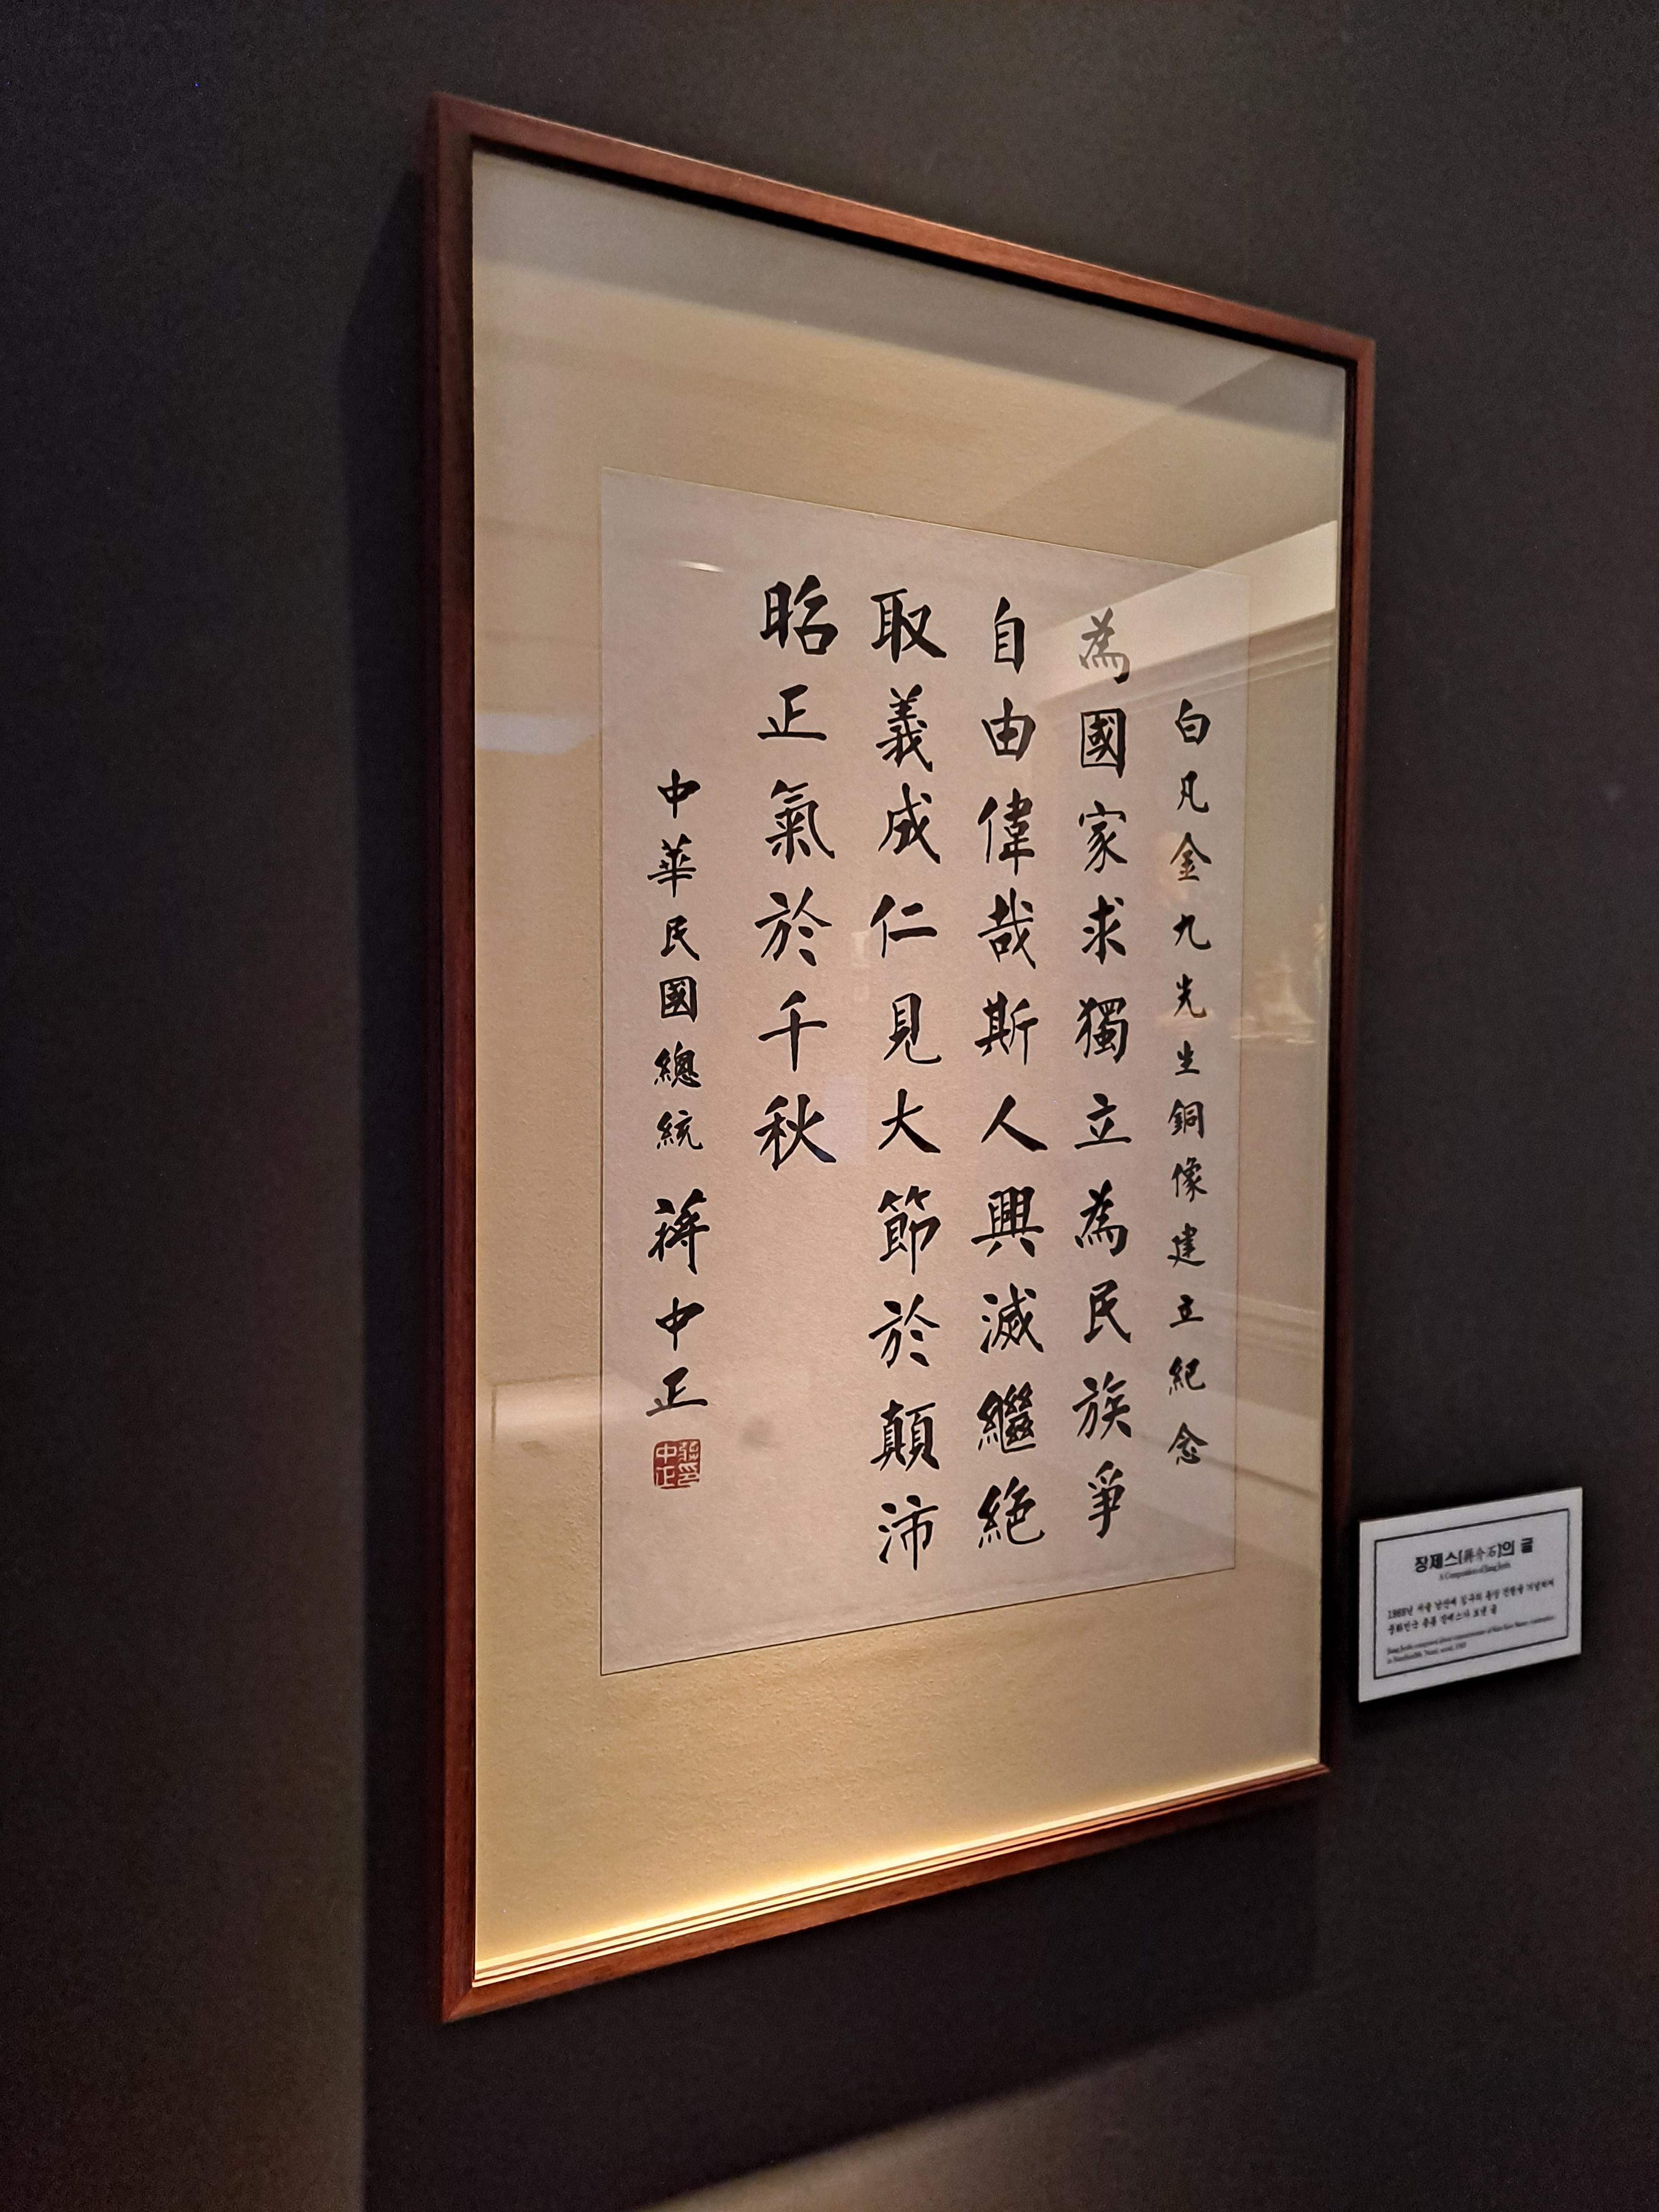 白凡金九先生銅像建立紀念
為國家求獨立為民族爭
自由偉哉斯人興滅繼絕
取義成仁見大節於顛沛
昭正氣於千秋
中華民國總統 蔣中正
蔣中正印
장제스(蔣介石)의 글
A Composition of Jiang Jieshi
1969년 서울 남산에 김구의 동상 건립을 기념하여
중화민국 총통 장제스가 보낸 글